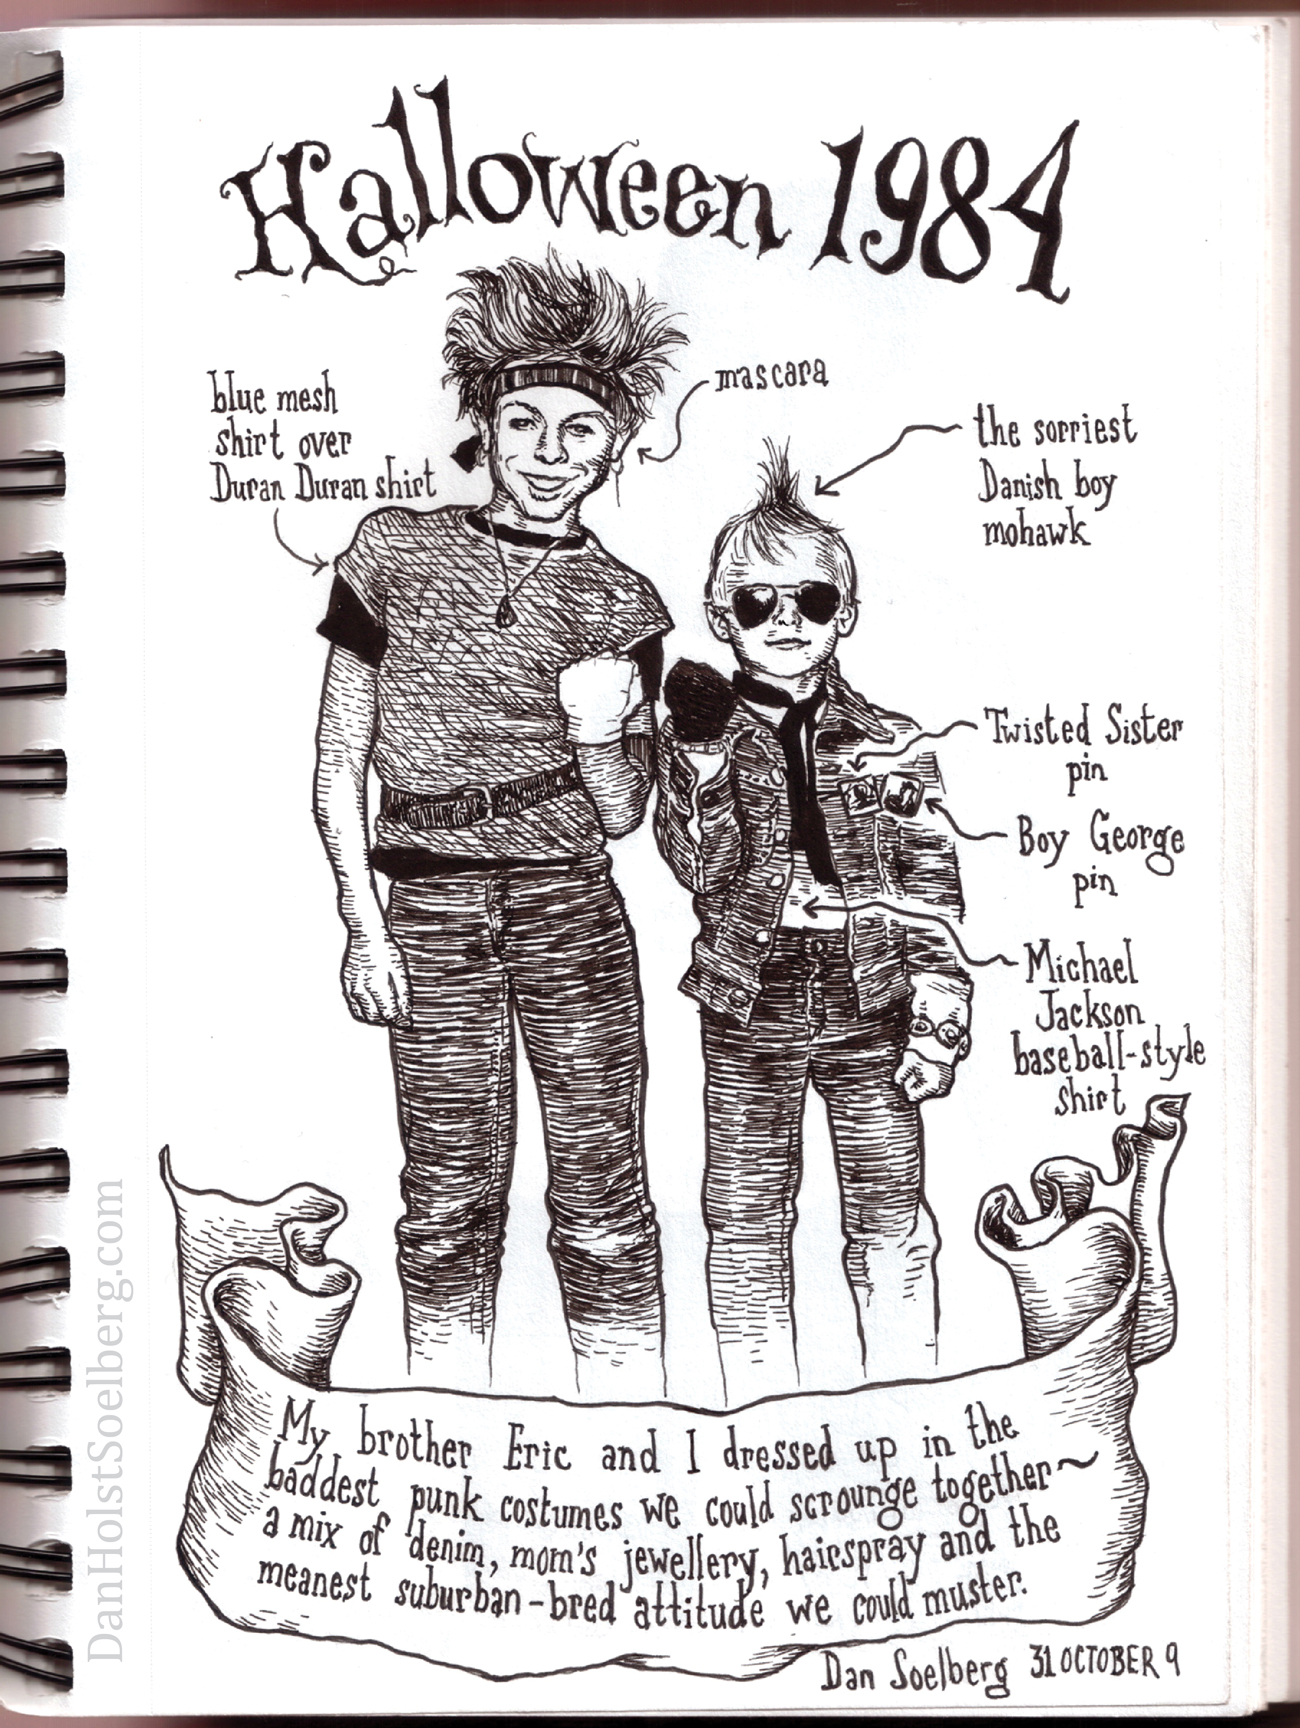 Halloween 1984
blue mesh
shirt over
Duran Duran shirt
mascara
the sorriest
Danish boy
mohawk
Twisted Sister
pin
Boy George
pin
Michael
Jackson
baseball-style
shirt
My brother Eric and I dressed up in the
baddest punk costumes we could scrounge together~
a mix of denim, mom's jewellery, hairspray and the
meanest suburban-bred attitude we could muster.
Dan Soelberg 31 OCTOBER 9
DanHolstSoelberg.com